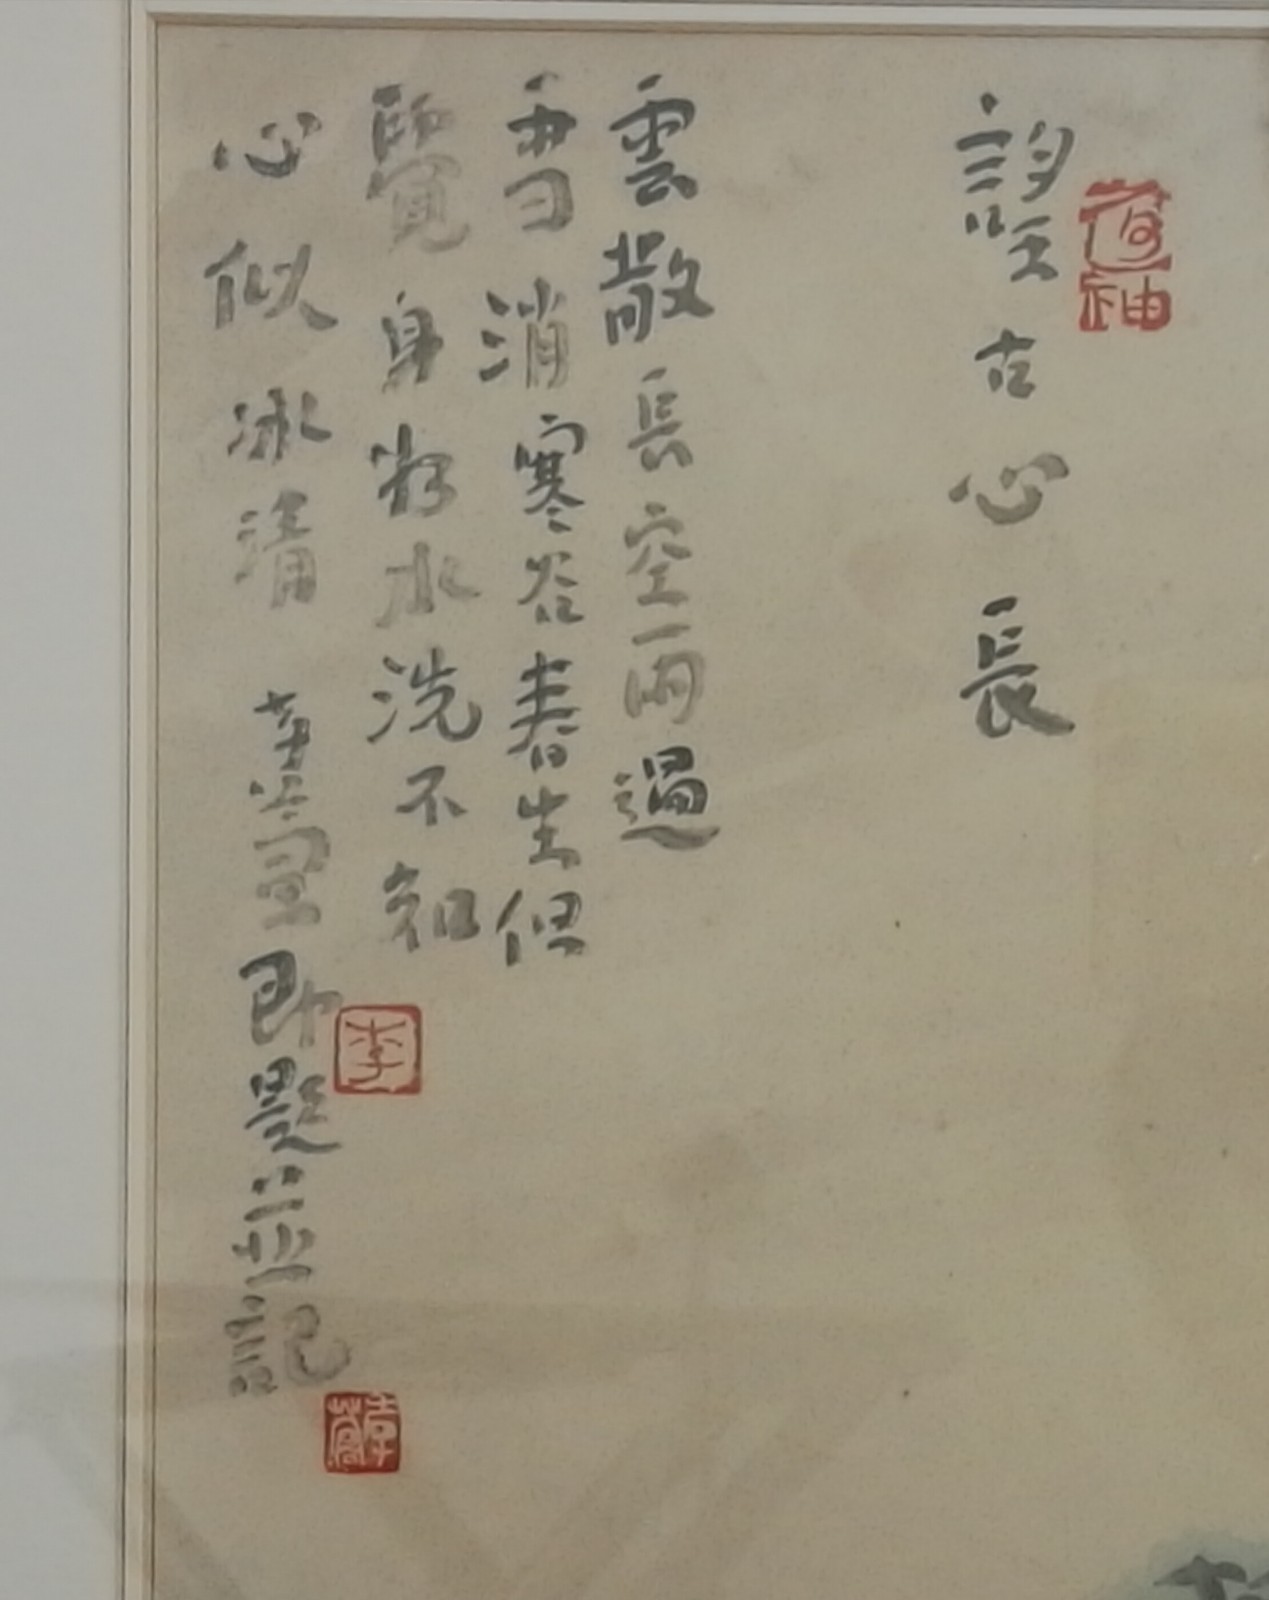 證古心長
雲散長空雨過
雪消寒谷春生但
覺身如水洗不知
心似冰清
即題並記
李